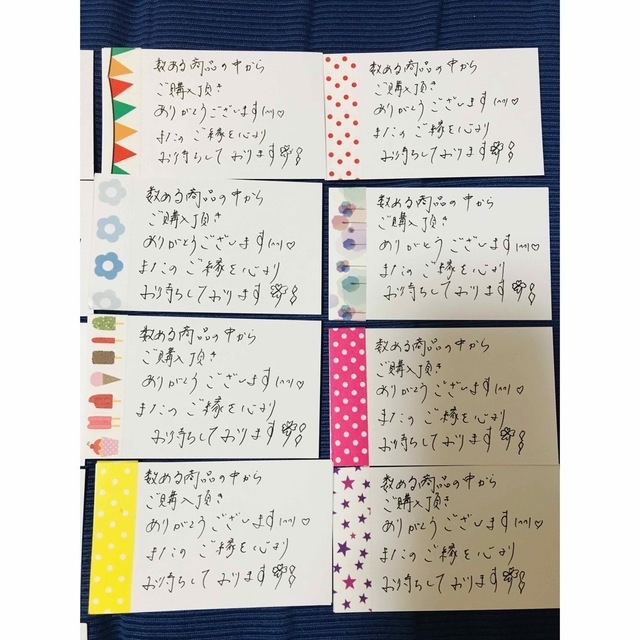 数ある商品の中から
ご購入頂き
ありがとうございます(^^)♡
またのご縁を心より
お待ちしております
数ある商品の中から
ご購入頂き
ありがとうございます(^^)♡
またのご縁を心より
お待ちしております
数ある商品の中から
ご購入頂き
ありがとうございます(^^)♡
またのご縁を心より
お待ちしております
数ある商品の中から
ご購入頂き
ありがとうございます(^^)♡
またのご縁を心より
お待ちしております
数ある商品の中から
ご購入頂き
ありがとうございます(^^)♡
またのご縁を心より
お待ちしております
数ある商品の中から
ご購入頂き
ありがとうございます(^^)♡
またのご縁を心より
お待ちしております
数ある商品の中から
ご購入頂き
ありがとうございます(^^)♡
またのご縁を心より
お待ちしております
数ある商品の中から
ご購入頂き
ありがとうございます(^^)♡
またのご縁を心より
お待ちしております